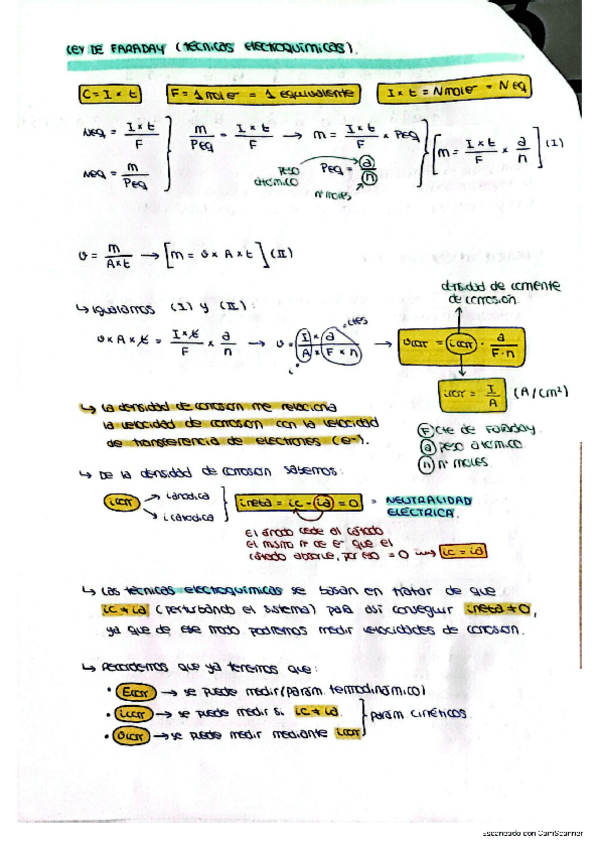 LEY DE FARADAY (TÉCNICAS ELECTROQUÍMICAS).
C = I × t
F = 1 mol e⁻ = 1 equivalente
I × t = N mol e⁻ = N eq
Neq = I × t / F
Neq = m / Peq
m / Peq = I × t / F → m = I × t / F × Peq
[m = I × t / F × a / n] (I)
peso atómico
Peq = a / n
nº moles
v = m / A × t → [m = v × A × t] (II)
↳ Igualamos (I) y (II):
v × A × t = I × t / F × a / n → v = I × a / A × F × n
ctes
→ vcorr = icorr · a / F · n
densidad de corriente
de corrosión.
icorr = I / A (A/cm²)
↳ La densidad de corrosión me relaciona
la velocidad de corrosión con la velocidad
de transferencia de electrones (e⁻).
F cte de Faraday.
a peso atómico
n nº moles.
↳ De la densidad de corrosión sabemos:
icorr
→ i anódica
→ i catódica
ineta = ic - ia = 0 = NEUTRALIDAD
ELÉCTRICA.
El ánodo cede al cátodo
el mismo nº de e⁻ que el
cátodo absorve, por eso = 0 ⟿ ic = ia
↳ Las técnicas electroquímicas se basan en tratar de que
ic ≠ ia (perturbando el sistema) para así conseguir ineta ≠ 0,
ya que de ese modo podremos medir velocidades de corrosión.
↳ Recordemos que ya tenemos que:
• Ecorr → se puede medir (parám. termodinámico)
• icorr → se puede medir si ic ≠ ia.
• vcorr → se puede medir mediante icorr
} parám. cinéticos.
Escaneado con CamScanner